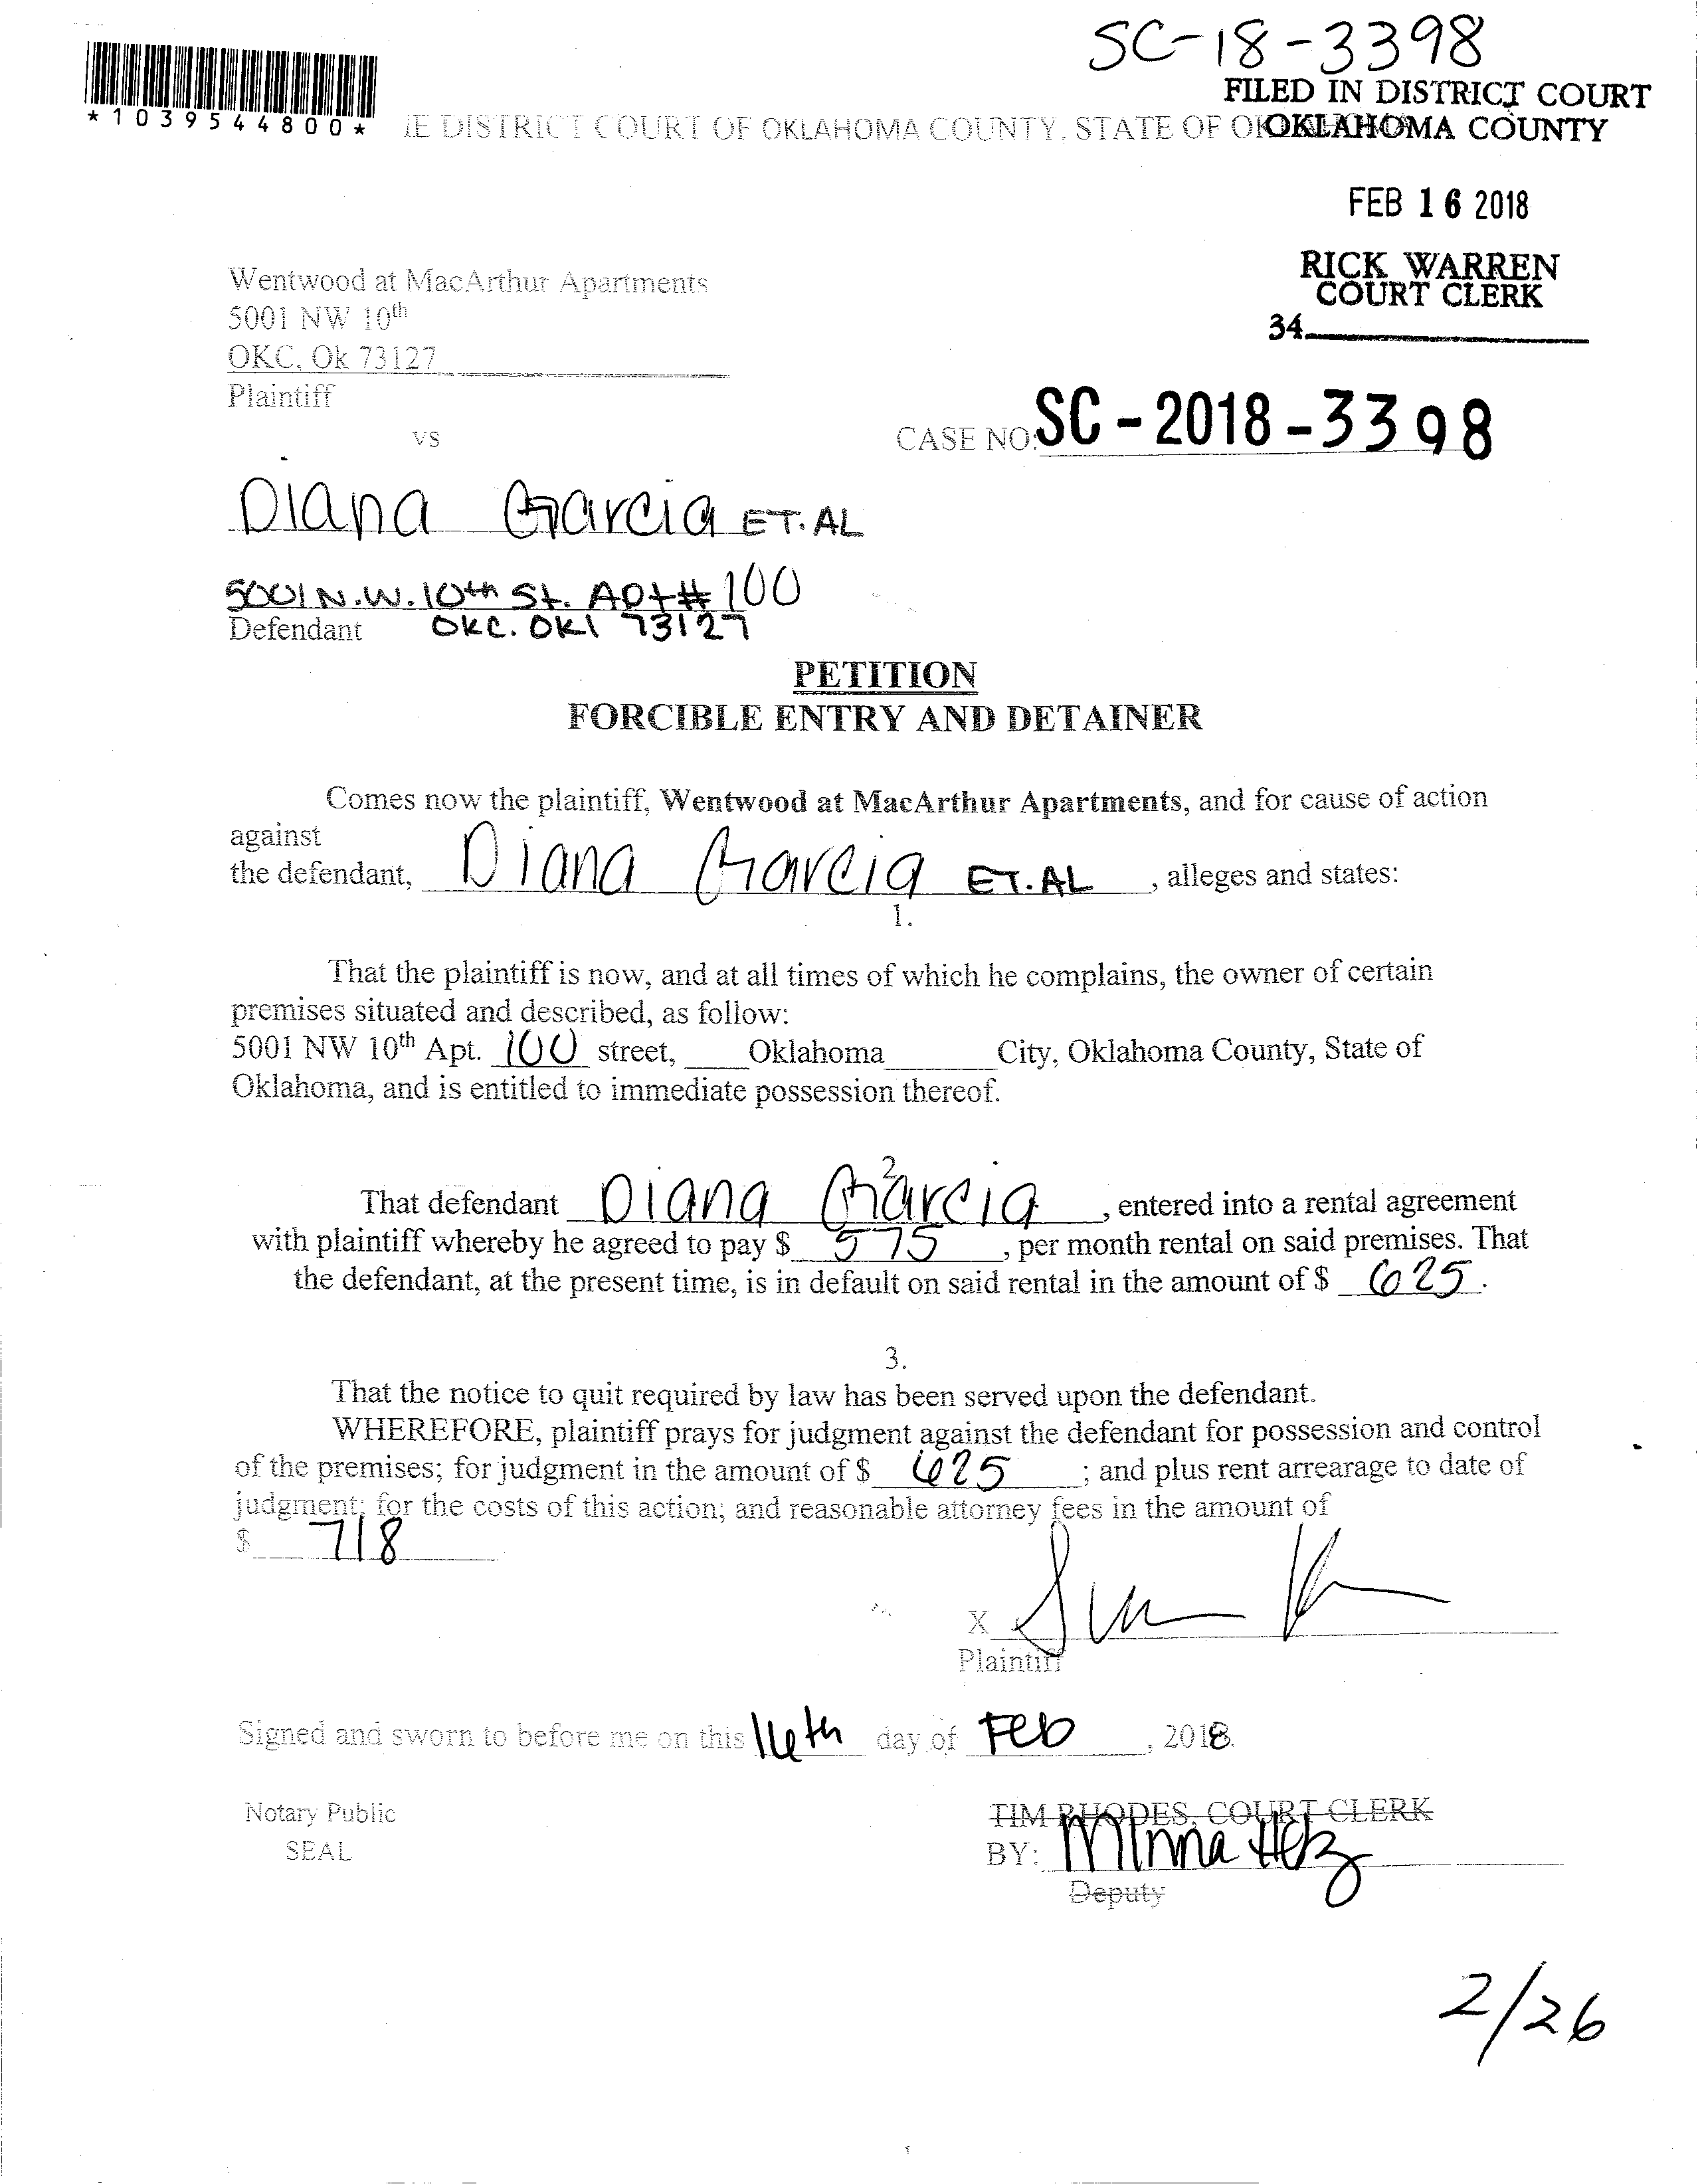 SC-18-3398
FILED IN DISTRICT COURT
OKLAHOMA COUNTY
*1039544800*
IE DISTRICT COURT OF OKLAHOMA COUNTY, STATE OF
FEB 16 2018
RICK WARREN
COURT CLERK
34
Wentwood at MacArthur Apartments
5001 NW 10th
OKC, Ok 73127
Plaintiff
vs
CASE NO: SC-2018-3398
Diana Garcia ET.AL
5001 N.W. 10th St. Apt# 100
Defendant OKC. OKl 73127
PETITION
FORCIBLE ENTRY AND DETAINER
Comes now the plaintiff, Wentwood at MacArthur Apartments, and for cause of action
against
the defendant, Diana Garcia ET.AL , alleges and states:
1.
That the plaintiff is now, and at all times of which he complains, the owner of certain
premises situated and described, as follow:
5001 NW 10th Apt. 100 street, Oklahoma City, Oklahoma County, State of
Oklahoma, and is entitled to immediate possession thereof.
2
That defendant Diana Garcia , entered into a rental agreement
with plaintiff whereby he agreed to pay $ 575 , per month rental on said premises. That
the defendant, at the present time, is in default on said rental in the amount of $ 625.
3.
That the notice to quit required by law has been served upon the defendant.
WHEREFORE, plaintiff prays for judgment against the defendant for possession and control
of the premises; for judgment in the amount of $ 625 ; and plus rent arrearage to date of
judgment; for the costs of this action; and reasonable attorney fees in the amount of
$ 718
X
Plaintiff
Signed and sworn to before me on this 16th day of Feb , 2018.
Notary Public
SEAL
TIM RHODES, COURT CLERK
BY: Minna
Deputy
2/26